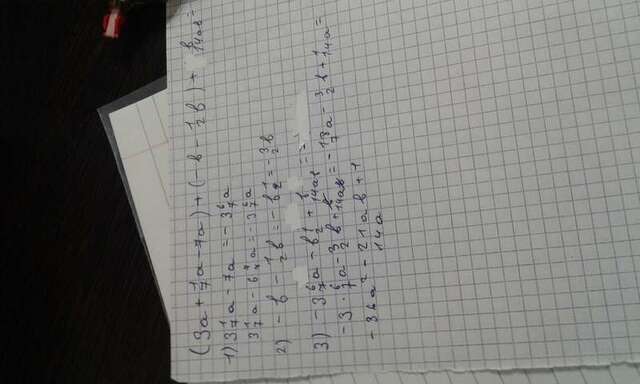 (3a + 1/7 a - 7a) + (-b - 1/2 b) + b/14ab =
1) 3 1/7 a - 7a = -3 6/7 a
3 1/7 a - 6 7/7 a = -3 6/7 a
2) -b - 1/2 b = -b 1/2 = -3/2 b
3) -3 6/7 a - b 1/2 + b/14ab =
-3 · 6/7 a - 3/2 b + b/14ab = -18/7 a - 3/2 b + 1/14a =
-36a² - 21ab + 1
14a